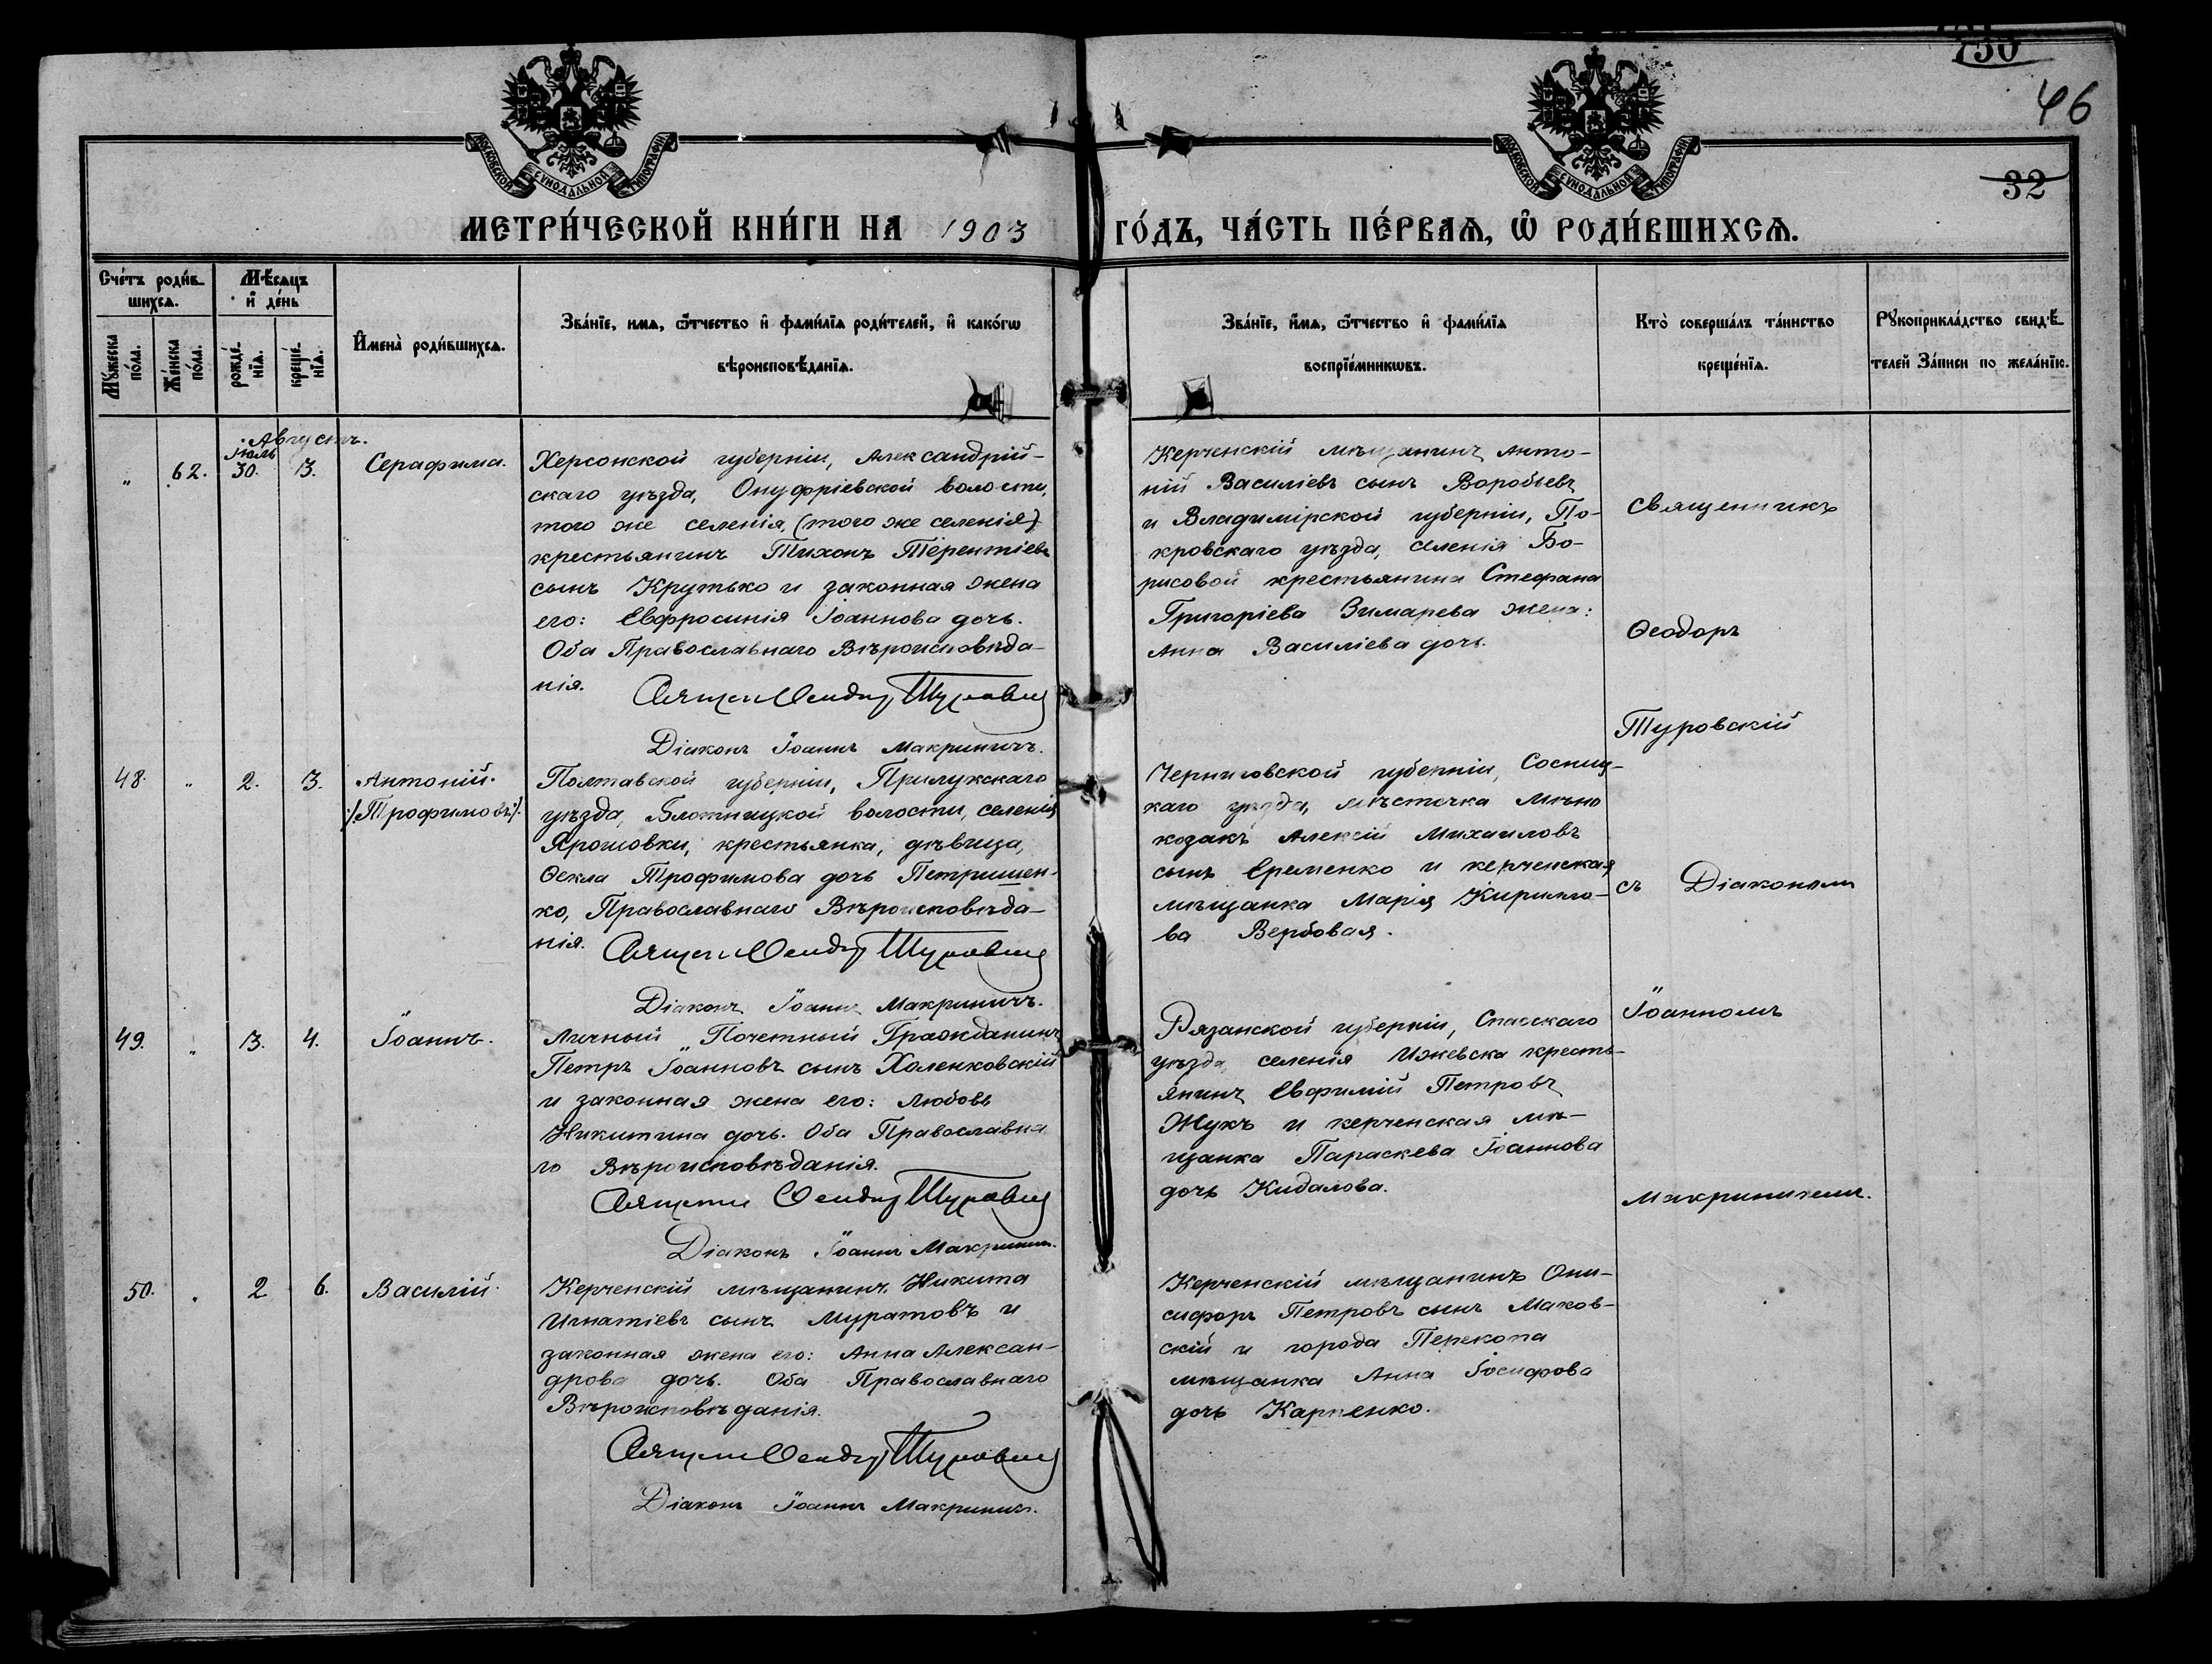 750
46
32
МОСКОВСКОЙ СУНОДАЛЬНОЙ ТИПОГРАФІИ
МОСКОВСКОЙ СУНОДАЛЬНОЙ ТИПОГРАФІИ
МЕТРИ́ЧЕСКОЙ КНИ́ГИ НА 1903 ГО́ДЪ, ЧА́СТЬ ПЕ́РВАѦ, Ѡ҆ РОДИ́ВШИХСѦ.
Сче́тъ роди́в-
шихсѧ.
Мꙋ́жеска
по́ла.
Же́нска
по́ла.
Мѣ́сѧцъ
и҆ де́нь
рожде́-
нїѧ.
креще́-
нїѧ.
И҆мена̀ роди́вшихсѧ.
Зва́нїе, имѧ, ѻ҆́тчество и҆ фами́лїѧ роди́телей, и҆ како́гѡ
вѣроисповѣ́данїѧ.
Зва́нїе, и҆́мѧ, ѻ҆́тчество и҆ фами́лїѧ
воспрїе́мникѡвъ.
Кто̀ соверша́лъ та́инство
креще́нїѧ.
Рꙋкоприкла́дство свидѣ́-
телей За́писи по жела́нїю.
Августъ.
Іюль
„ 62. 30. 3. Серафима.
Херсонской губерніи, Александрій-
скаго уѣзда, Онуфріевской волости,
того же селенія (того же селенія)
крестьянинъ Тихонъ Терентіевъ
сынъ Крутько и законная жена
его: Евфросинія Іоаннова дочь.
Оба Православнаго Вѣроисповѣда-
нія.
Діаконъ Іоаннъ Макриничъ.
Керченскій мѣщанинъ Анто-
ній Василіевъ сынъ Воробьевъ
и Владимірской губерніи, По-
кровскаго уѣзда, селенія Бо-
рисовой крестьянина Стефана
Григоріева Зимарева жена:
Анна Василіева дочь.
Священникъ
Ѳеодоръ
Туровскій
съ Діакономъ
Іоанномъ
Макриничемъ.
48. „ 2. 3. Антоній.
/:Трофимовъ:/.
Полтавской губерніи, Прилукскаго
уѣзда, Блотницкой волости, селенія
Ярошовки, крестьянка, дѣвица,
Ѳекла Трофимова дочь Петришен-
ко, Православнаго Вѣроисповѣда-
нія.
Діаконъ Іоаннъ Макриничъ.
Черниговской губерніи, Сосниц-
каго уѣзда, мѣстечка Мѣно
козакъ Алексій Михаиловъ
сынъ Еременко и керченская
мѣщанка Марія Кирилло-
ва Вербовая.
49. „ 3. 4. Іоаннъ.
Личный Почетный Гражданинъ
Петръ Іоанновъ сынъ Холенковскій
и законная жена его: Любовь
Никитина дочь. Оба Православна
го Вѣроисповѣданія.
Діаконъ Іоаннъ Макриничъ.
Рязанской губерніи, Спасскаго
уѣзда селенія Ижевска кресть-
янинъ Евфимій Петровъ
Жукъ и керченская мѣ-
щанка Параскева Іоаннова
дочь Кидалова.
50. „ 2 6. Василій.
Керченскій мѣщанинъ, Никита
Игнатіевъ сынъ Муратовъ и
законная жена его: Анна Алексан-
дрова дочь. Оба Православнаго
Вѣроисповѣданія.
Діаконъ Іоаннъ Макриничъ.
Керченскій мѣщанинъ Они-
сифоръ Петровъ сынъ Маков-
скій и города Перекопа
мѣщанка Анна Іосифова
дочь Карпенко.